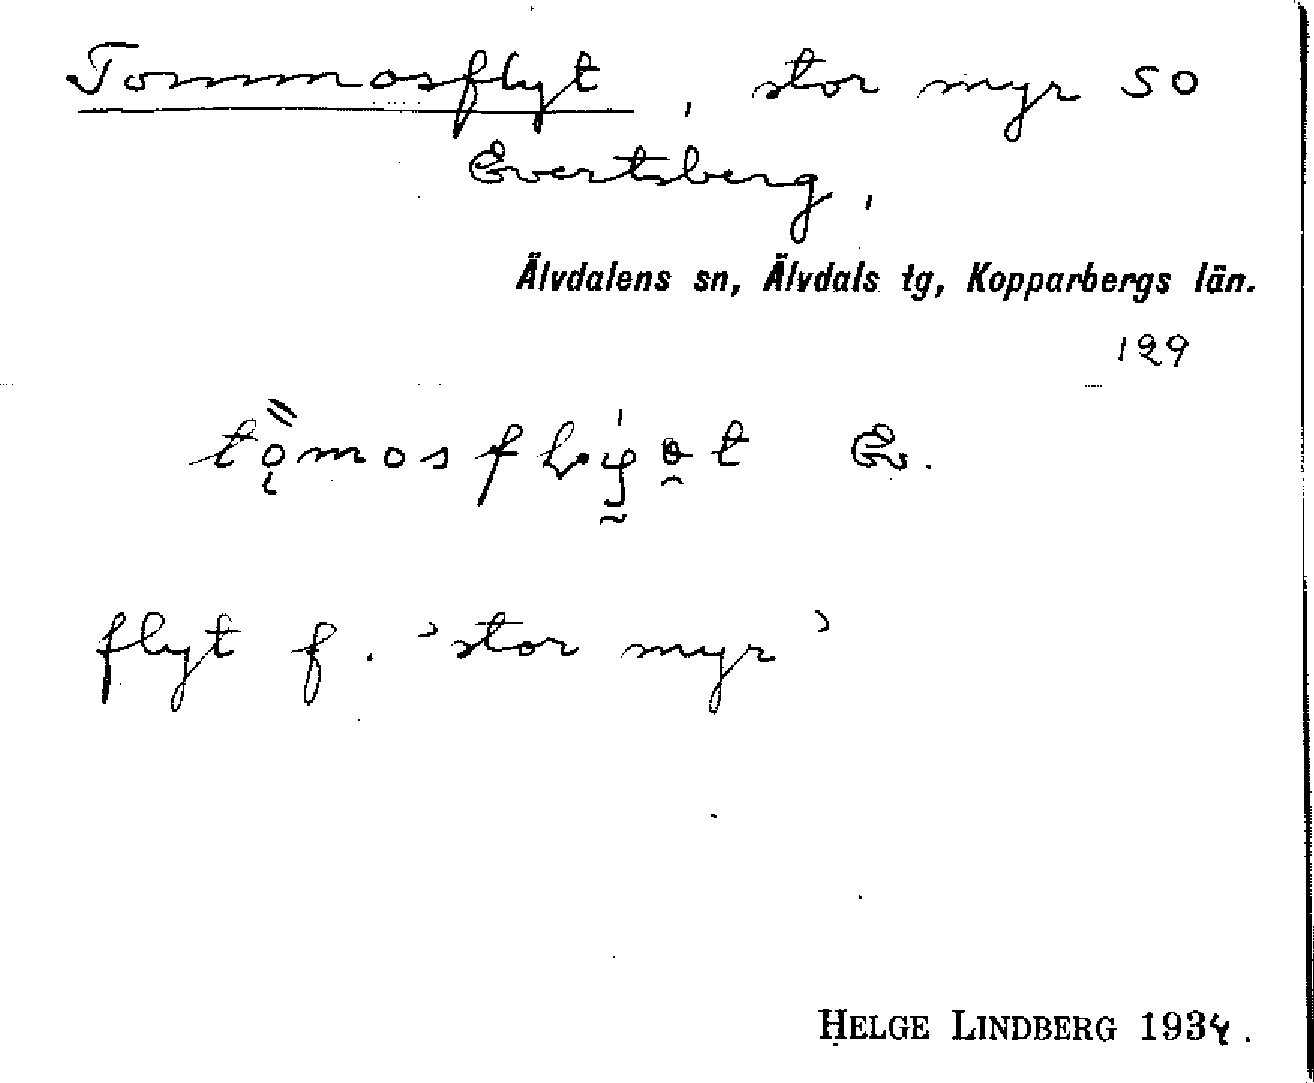 Tommosflyt, stor myr SO
Evertsberg,
Älvdalens sn, Älvdals tg, Kopparbergs län.
129
E.
flyt f. 'stor myr'
HELGE LINDBERG 1934.